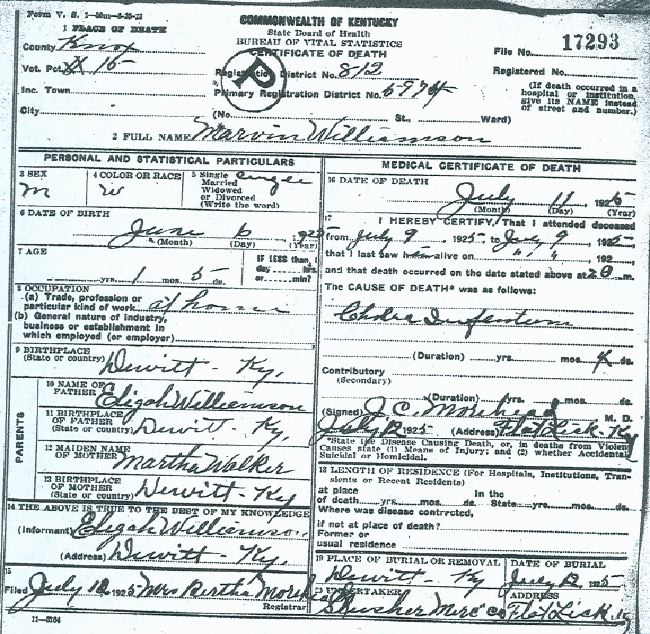 Form V. S. 1-50m-8-20-23
COMMONWEALTH OF KENTUCKY
State Board of Health
BUREAU OF VITAL STATISTICS
CERTIFICATE OF DEATH
1 PLACE OF DEATH
County Knox
File No. 17293
Vot. Pct. 15
Registration District No. 812
Registered No.
Inc. Town
Primary Registration District No. 5974
(If death occurred in a hospital or institution, give its NAME instead of street and number.)
City (No. St., Ward)
2 FULL NAME Marvin Williamson
PERSONAL AND STATISTICAL PARTICULARS
3 SEX
M
4 COLOR OR RACE
W
5 Single
Married
Widowed
or Divorced
(Write the word)
Single
6 DATE OF BIRTH
June 6, 192
(Month) (Day) (Year)
7 AGE
yrs. 1 mos. 5 ds.
IF LESS than
day hrs.
or min?
8 OCCUPATION
(a) Trade, profession or
particular kind of work at home
(b) General nature of industry,
business or establishment in
which employed (or employer)
9 BIRTHPLACE
(State or country) Dewitt - Ky.
PARENTS
10 NAME OF
FATHER Eligah Williamson
11 BIRTHPLACE
OF FATHER
(State or country) Dewitt - Ky
12 MAIDEN NAME
OF MOTHER Martha Walker
13 BIRTHPLACE
OF MOTHER
(State or country) Dewitt - Ky
14 THE ABOVE IS TRUE TO THE BEST OF MY KNOWLEDGE
(Informant) Eligah Williamson
(Address) Dewitt - Ky.
15
Filed July 12 1925 Mrs Bertha Morehead
Registrar
11-3184
MEDICAL CERTIFICATE OF DEATH
16 DATE OF DEATH
July 11 1925
(Month) (Day) (Year)
17
I HEREBY CERTIFY, That I attended deceased
from July 9 1925 to July 9, 1925
that I last saw him alive on " " 192
and that death occurred on the date stated above at m.
The CAUSE OF DEATH* was as follows:
Cholera Infentum
(Duration) yrs. mos. 4 ds.
Contributory
(Secondary)
(Duration) yrs. mos. ds.
(Signed) J. C. Morehead M. D.
July 12 1925 (Address) Flat Lick - Ky
*State the Disease Causing Death, or, in deaths from Violent
Causes state (1) Means of Injury; and (2) whether Accidental,
Suicidal or Homicidal.
18 LENGTH OF RESIDENCE (For Hospitals, Institutions, Tran-
sients or Recent Residents)
at place In the
of death yrs. mos. ds. State yrs. mos. ds.
Where was disease contrrcted,
if not at place of death?
Former or
usual residence
19 PLACE OF BURIAL OR REMOVAL
Dewitt - Ky
DATE OF BURIAL
July 12 1925
20 UNDERTAKER
Slusher Merc Co
ADDRESS
Flat Lick, Ky